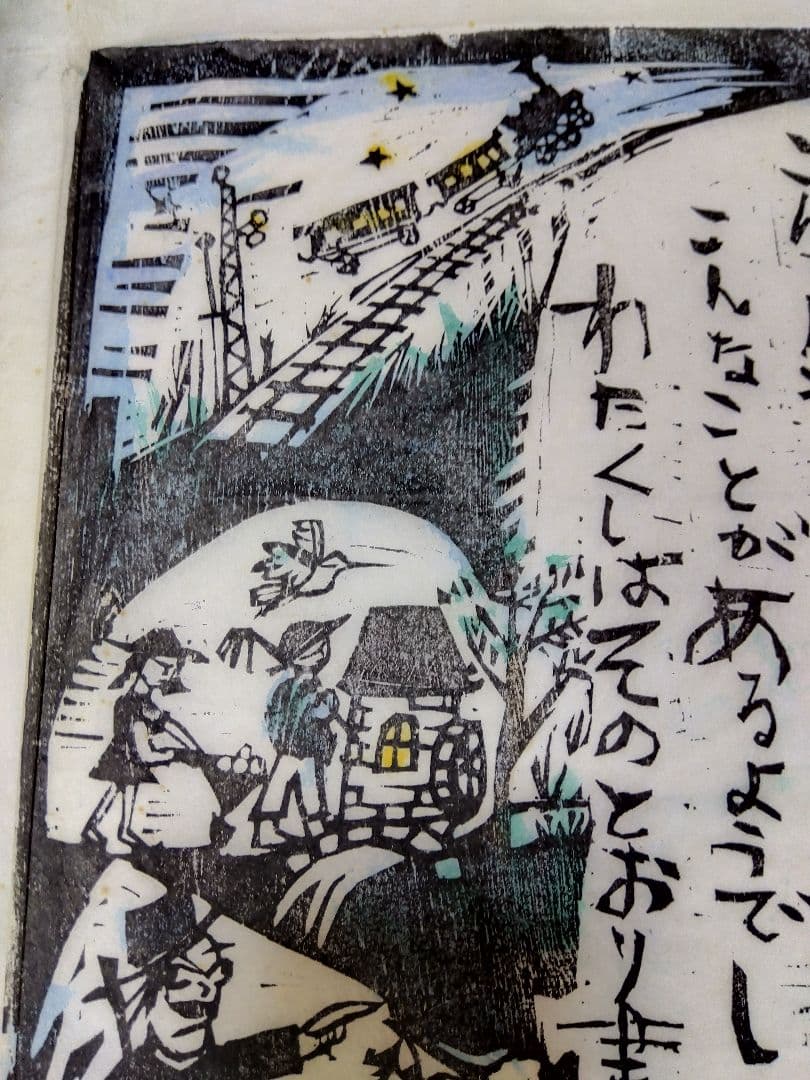 こんなことがあるようでし
わたくしはそのとおり